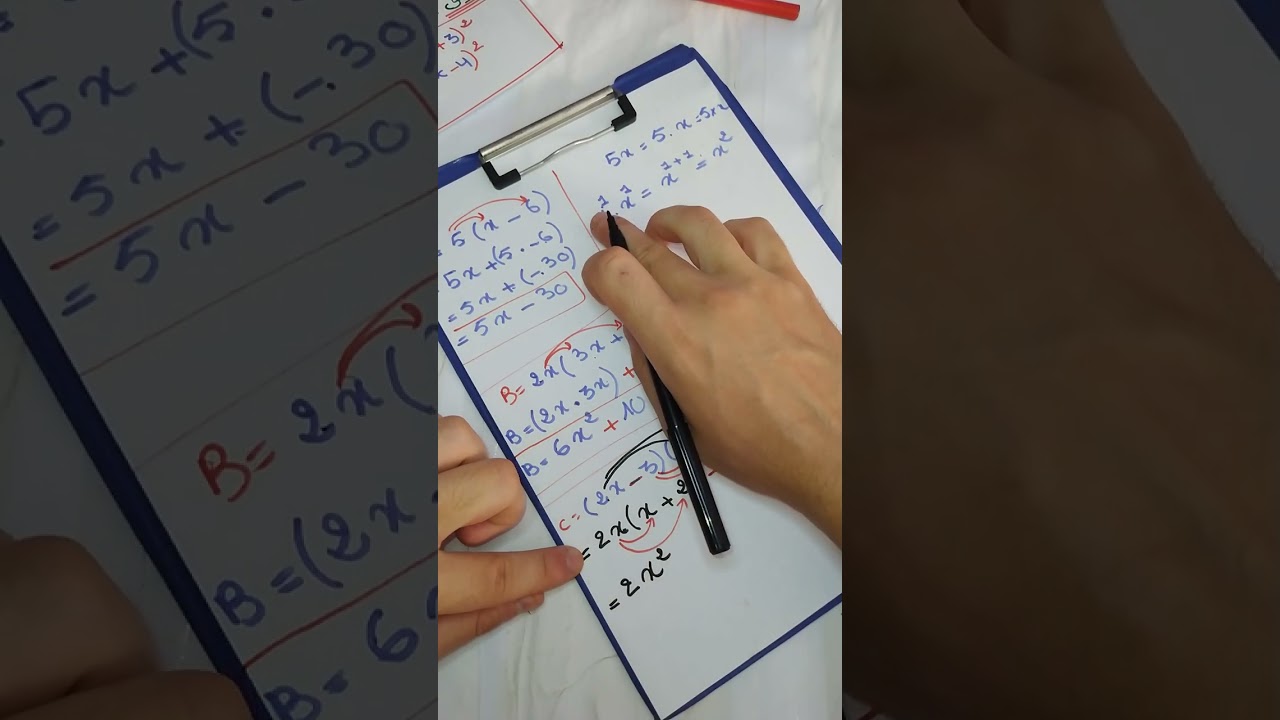 +3)²
x-4)²
5x = 5.x = 5×x
x¹ = x¹⁺¹ = x²
= 5(x - 6)
5x+(5.-6)
= 5x + (-.30)
= 5x - 30
B= 2x(3x+
B=(2x.3x)+
B= 6x² + 10
C=(2x-3)(
= 2x(x+2
= 2x²